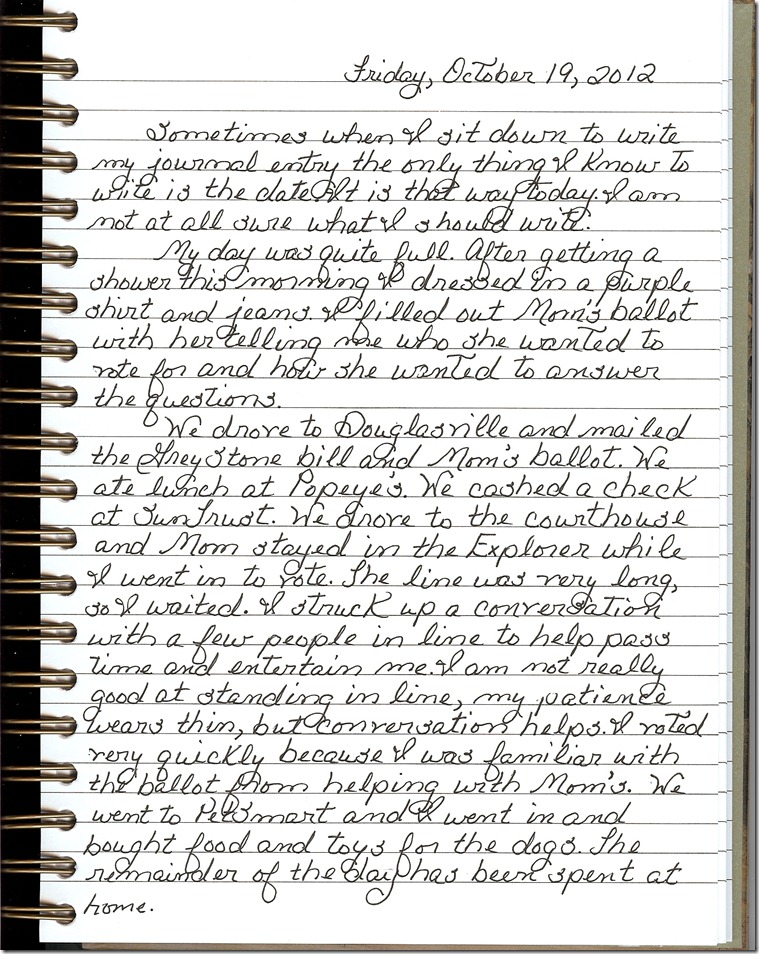 Friday, October 19, 2012
Sometimes when I sit down to write
my journal entry the only thing I know to
write is the date. It is that way today. I am
not at all sure what I should write.
My day was quite full. After getting a
shower this morning I dressed in a purple
shirt and jeans. I filled out Mom's ballot
with her telling me who she wanted to
vote for and how she wanted to answer
the questions.
We drove to Douglasville and mailed
the GreyStone bill and Mom's ballot. We
ate lunch at Popeye's. We cashed a check
at SunTrust. We drove to the courthouse
and Mom stayed in the Explorer while
I went in to vote. The line was very long,
so I waited. I struck up a conversation
with a few people in line to help pass
time and entertain me. I am not really
good at standing in line, my patience
wears thin, but conversation helps. I voted
very quickly because I was familiar with
the ballot from helping with Mom's. We
went to PetSmart and I went in and
bought food and toys for the dogs. The
remainder of the day has been spent at
home.